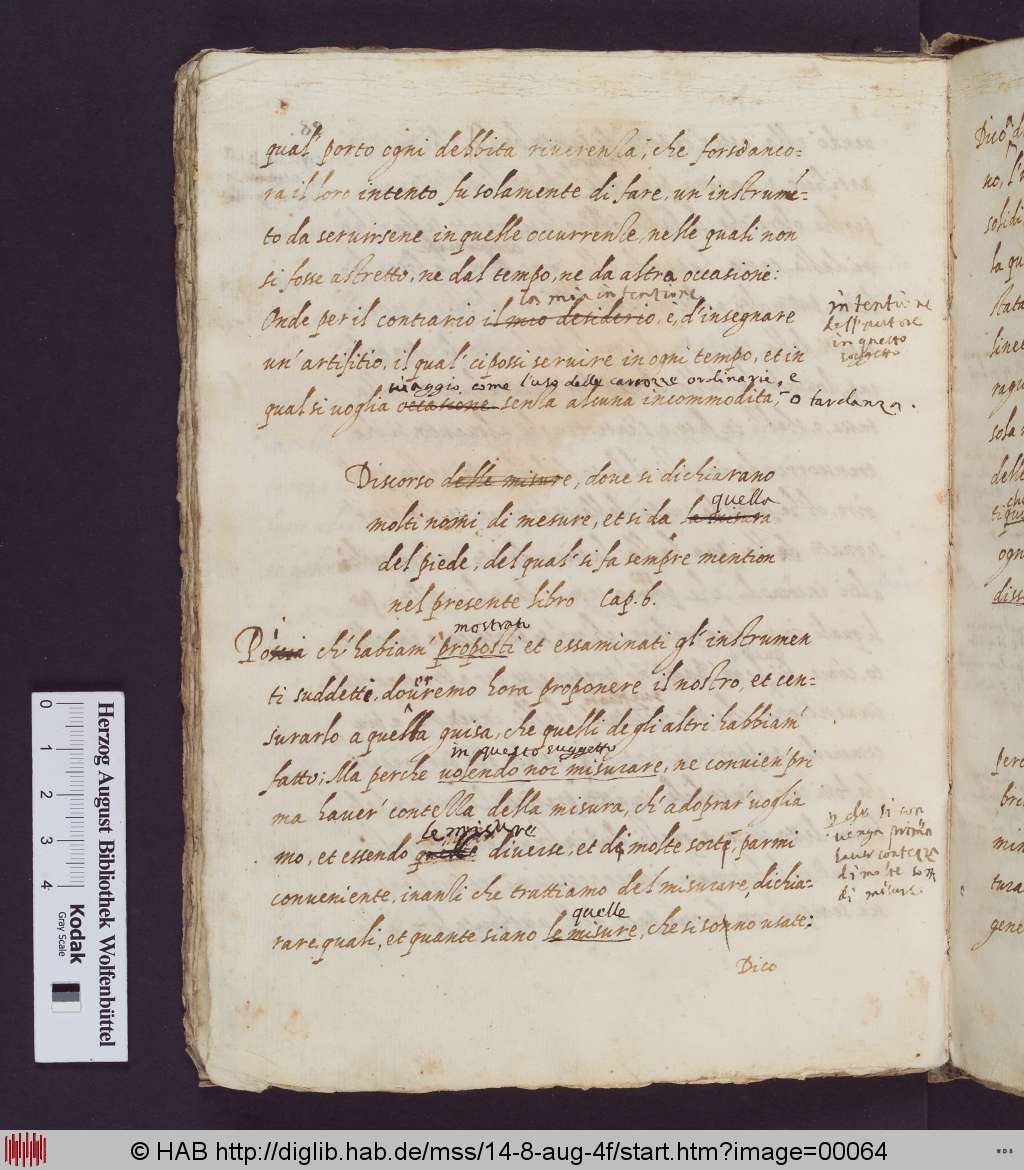 qual' porto ogni debbita riverenza, che fors'anco-
ra il loro intento fu solamente di fare, un' instrumē-
to da servirsene in quelle occurrenze, nelle quali non
si fosse astretto, ne dal tempo, ne da altra occasione:
la mia intentione
Onde per il contrario il mio desiderio, è, d'insegnare
un' artifitio, il qual' ci possi servire in ogni tempo, et in
viaggio come l'uso delle carrozze ordinarie, e
qual si voglia occasione senza alcuna incommodita, o tardanza.
intentione
dell'autore
in questo
soggetto
Discorso delle misure, dove si dichiarano
quella
molti nomi di mesure, et si da la misura
del piede, del qual' si fa sempre mention
nel presente libro Cap. 6.
mostrati
Poscia ch' habiam' proposti et essaminati gl' instrumen
ti suddetti, douremo hora proponere il nostro, et cen-
surarlo a quella guisa, che quelli degli altri habbiam'
in questo suggetto
fatto; Ma perche volendo noi misurare, ne convien' pri
ma haver' contezza della misura, ch' adoprar' voglia
le misure
mo, et essendo quelle diverse, et di molte sorti, parmi
conveniente, inanzi che trattiamo del misurare, dichia-
quelle
rare quali, et quante siano le misure, che si sonno usate:
che si con
venga prima
haver contezza
di molte sorti
di misure.
Dico
0
1
2
3
4
Herzog August Bibliothek Wolfenbüttel
Kodak
Gray Scale
© HAB http://diglib.hab.de/mss/14-8-aug-4f/start.htm?image=00064